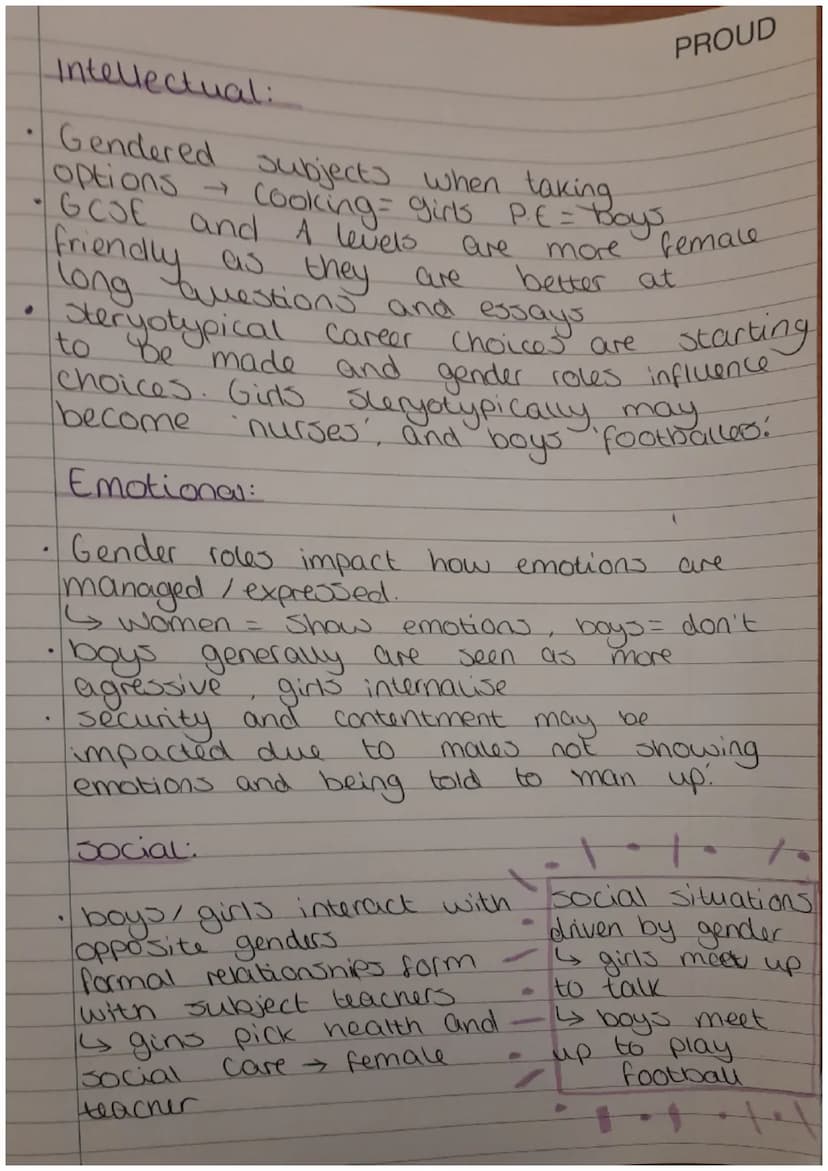 PROUD
Intellectual:
• Gendered subjects when taking
options → Cooking = girls P.E = boys
• GCSE and A levels are more female
friendly as they are better at
long questions and essays
• steryotypical career choices are starting
to be made and gender roles influence
choices. Girls steryotypically may
become 'nurses', and boys 'footballers.'
Emotional:
• Gender roles impact how emotions are
managed / expressed.
↳ women = show emotions, boys = don't
• boys generally are seen as more
agressive, girls internalise
• security and contentment may be
impacted due to males not showing
emotions and being told to man up.'
Social:
• boys/girls interact with
opposite genders
formal relationships form
with subject teachers
↳ girls pick health and
social care → female
teacher
social situations
driven by gender
↳ girls meet up
to talk
↳ boys meet
up to play
football